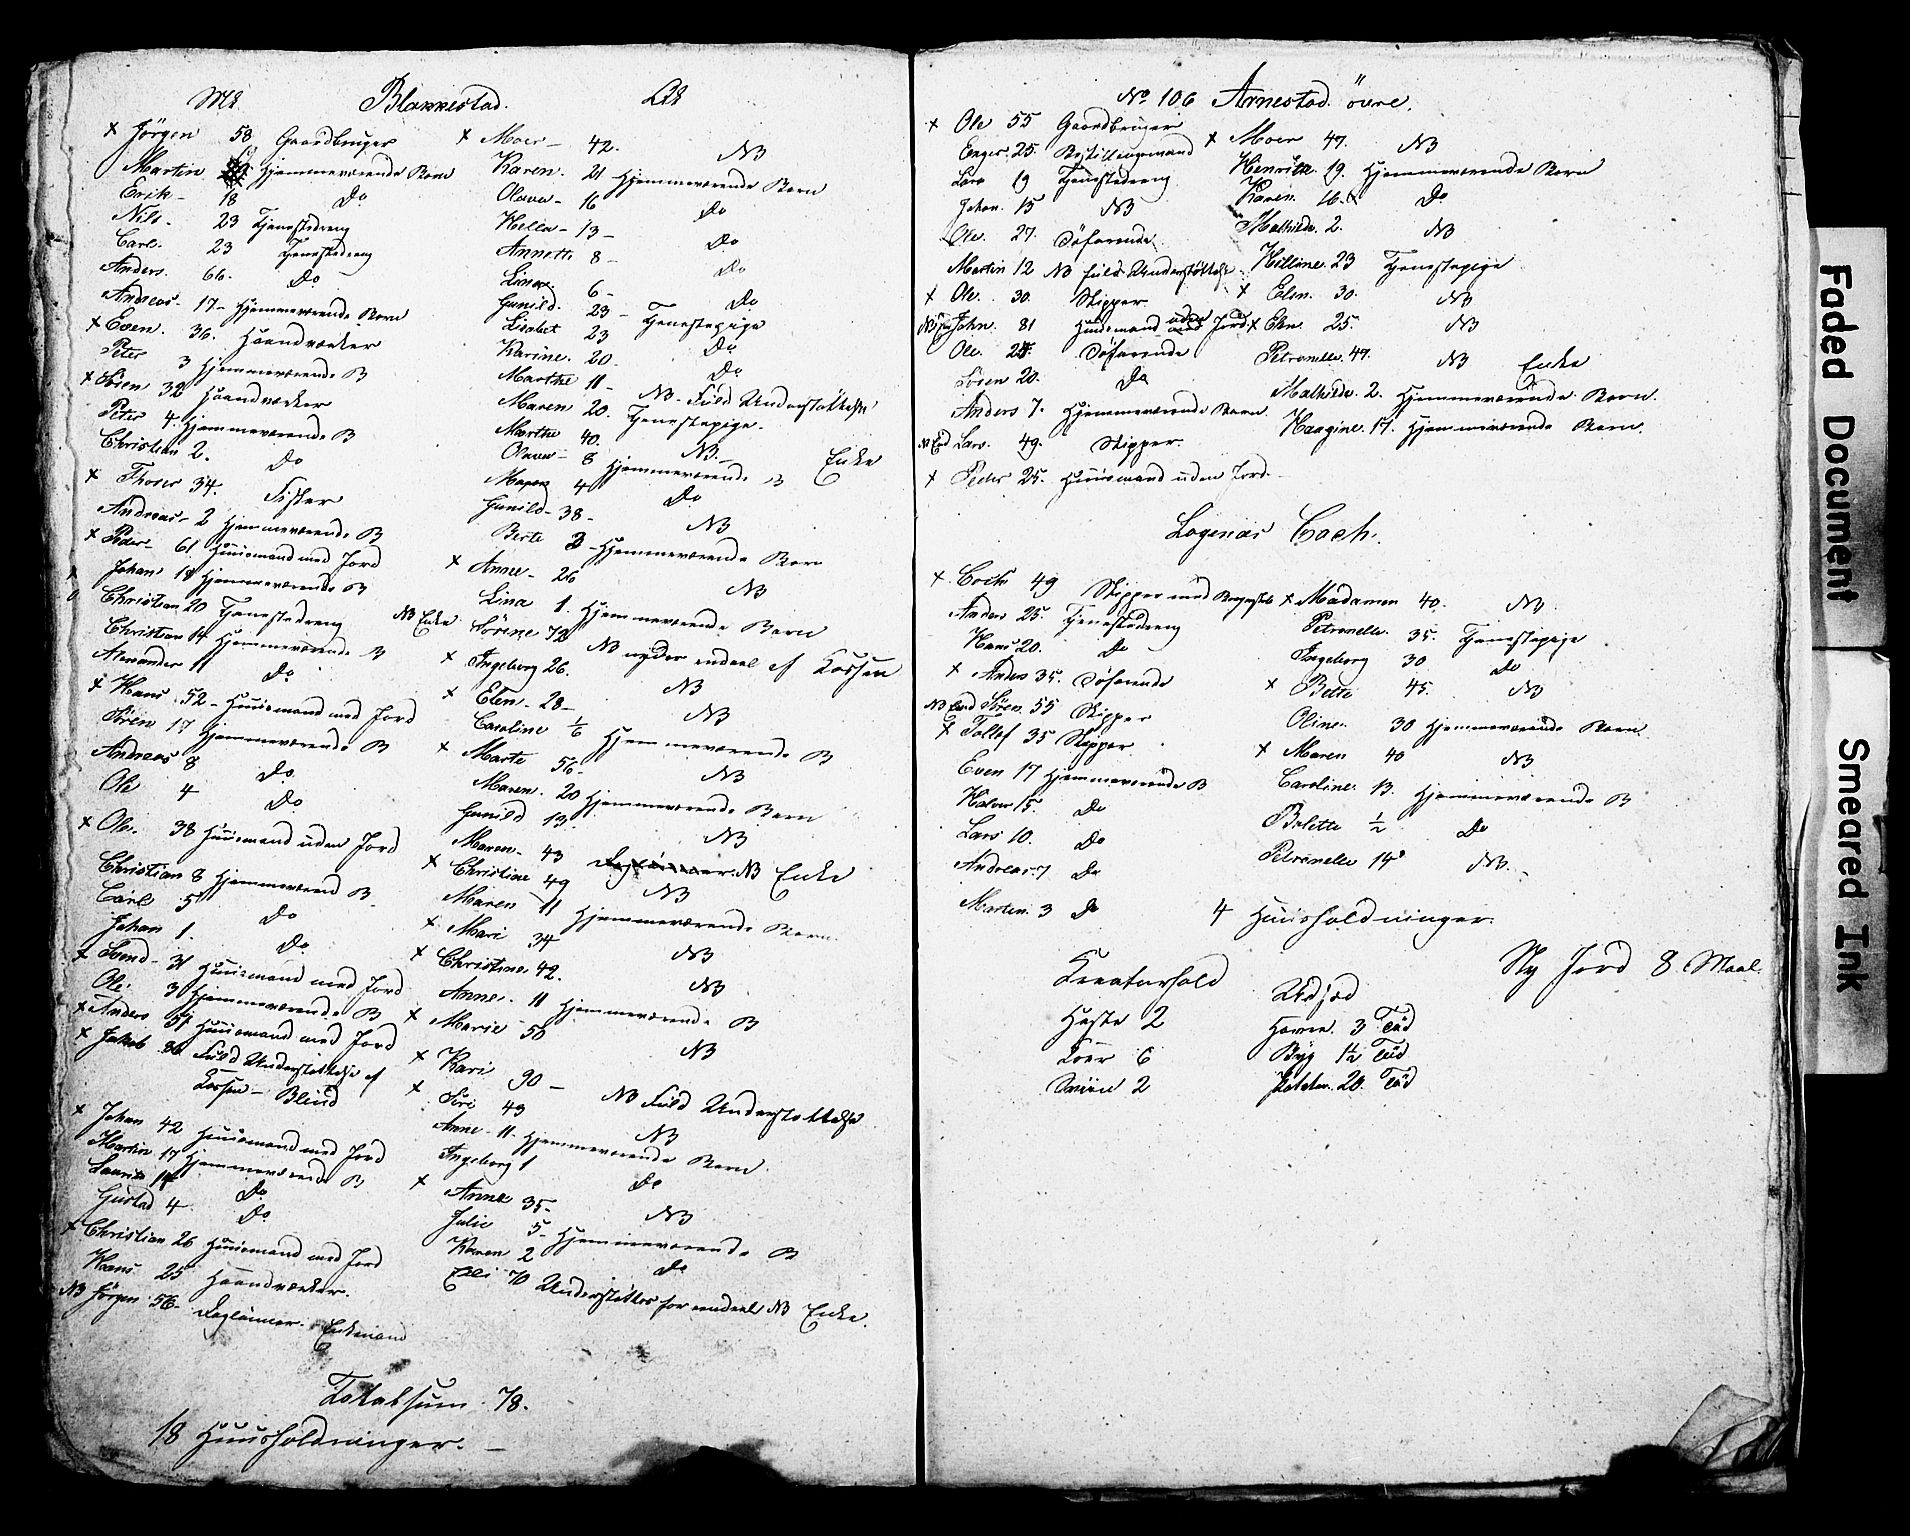 Mk Blakkestad. Qk
x Jörgen 58 Gaardbruger
Martin Hjemmeværende Børn
Erik - 18 Do
Nils - 23 Tjenestedreng
Carl. 23 Tjenestedreng
Anders. 66. Do
Andreas - 17 - Hjemmeværende Børn
x Even. 36. Haandværker
Peter 3 Hjemmeværende B
x Sören 32 Haandværker
Peter 4. Hjemmeværende B
Christian 2. Do
x Thoser 34. Fisker
Andreas - 2 Hjemmeværende B
x Peder - 61 Huusmand med Jord
Johan 18 Hjemmeværende B
Christian 20 Tjenestedreng
Christian 14 Hjemmeværende B
Alexander 11 Do
x Hans 52 - Huusmand med Jord
Sören 17 Hjemmeværende B
Andreas 8 Do
Ole 4 Do
x Ole. 38 Huusmand uden Jord
Christian 8 Hjemmeværend B
Carl 5 Do
Johan 1. Do
x Svend - 31 Huusmand med Jord
Ole. 3 Hjemmeværende B
x Anders 51 Huusmand med Jord
x Jakob 36 Fuld Understøttelse af
Kassen - Blind
x Johan 42 Huusmand med Jord
Martin 17 Hjemmeværende B
Laurits 14 Do
Gustad 4 Do
x Christian 26 Huusmand med Jord
Hans 25 Haandværker.
NB Jörgen 56 - Daglønner. Enkemand
x Moer - 42. NB
Karen. 21 Hjemmeværende Børn
Olava - 16 Do
Hella - 13 - Do
Annette 8 - Do
Linar. 6 - Do
Gunild. 23 - Tjenestepige
Lisabet 23 Do
Karine. 20 - Do
Marthe 11 - NB - Fuld Understøttelse
Maren 20. Tjenestepige.
Marthe 40. NB - Enke
Olava - 8 Hjemmeværende B
Maren 4 Do
Gunild - 38 - NB
Berte 3 - Hjemmeværende Børn
x Anne - 26 NB
Lina 1. Hjemmeværende Børn
NB Enke Sörine 72 NB nyder endeel af Kassen
x Ingeborg 26. NB
x Elen - 28 - NB
Caroline 1/6 Hjemmeværende B
x Marte 56 - NB
Maren. 20 Hjemmeværende Børn
Gunild 13.
Maren - 43 NB
x Christine 49 NB Enke
Maren 11 Hjemmeværende Børn.
x Mari 34 NB
x Christine 42. NB
Anne. 11 Hjemmeværende B
x Marie - 50 NB
x Kari 90 - NB Fuld Understøttelse
x Siri 43 NB
Anne - 11 - Hjemmeværende Børn.
Ingeborg 1 Do
x Anne 35 - NB
Julie 5 - Hjemmeværende B
Karen 2 Do
Elli 70 Understøttes for endeel NB Enke.
Totalsum 78.
18 Huusholdninger. -
No 106 Arnestad övre.
x Ole 55 Gaardbruger
25.
Lars 19 Tjenestedreng
Johan. 15 NB
Ole. 27. Søfarende
Martin 12 NB fuld Understøttelse
x Ole. 30. Skipper
John. 81 Huusmand uden Jord
Ole. Søfarende
Sören 20. Do
Anders 7. Hjemmeværende Børn
Lars. 49. Skipper.
x Peder 25. Huusmand uden Jord.
x Moer 47. NB
Henrikke 19. Hjemmeværende Børn
Karen. 16. Do
Mathilde. 2. NB
Helline. 23 Tjenestepige
x Elen. 30. NB
x Elen. 25. NB
Petronelle. 47. NB Enke
Mathilde. 2. Hjemmeværende Børn.
Haagine. 17. Hjemmeværende Børn.
Lagenæs Coch.
x Coch 49 Skipper med
Anders 25. Tjenestedreng
Hans 20. Do
x Anders 35. Søfarende
Sören 55 Skipper
x Tollef 35 Skipper
Even 17 Hjemmeværende B
Halvor 15. Do
Lars 10. Do
Andreas 7 Do
Martin. 3 Do
x Madamen 40. NB
Petronelle. 35. Tjenestepige
Ingeborg 30 Do
x Bette 45. NB
Oline. 30 Hjemmeværende Børn.
x Maren 40 NB
Caroline. 13. Hjemmeværende B
Bolette 1/2 Do
Petronelle 14 NB.
4 Huusholdninger.
Ny Jord 8 Maal.
Kreaturhold
Heste 2
Køer 6
Sviin 2
Udsæd
Havre. 3 Tød
Byg 1 1/2 Tød
Poteter. 20. Tød
Faded Document
Smeared Ink